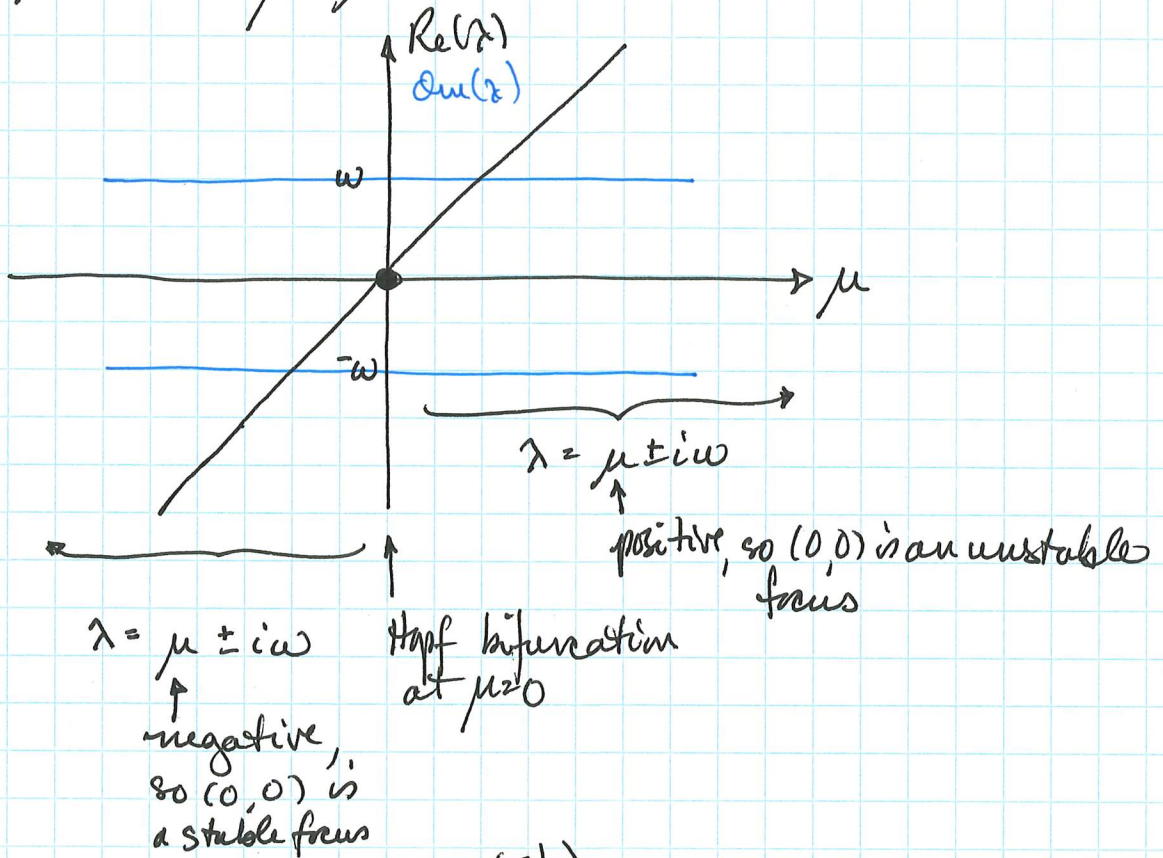 Re(λ)
Im(λ)
ω
μ
-ω
λ = μ ± iω
positive, so (0,0) is an unstable
focus
λ = μ ± iω
Hopf bifurcation
at μ=0
negative,
so (0,0) is
a stable focus